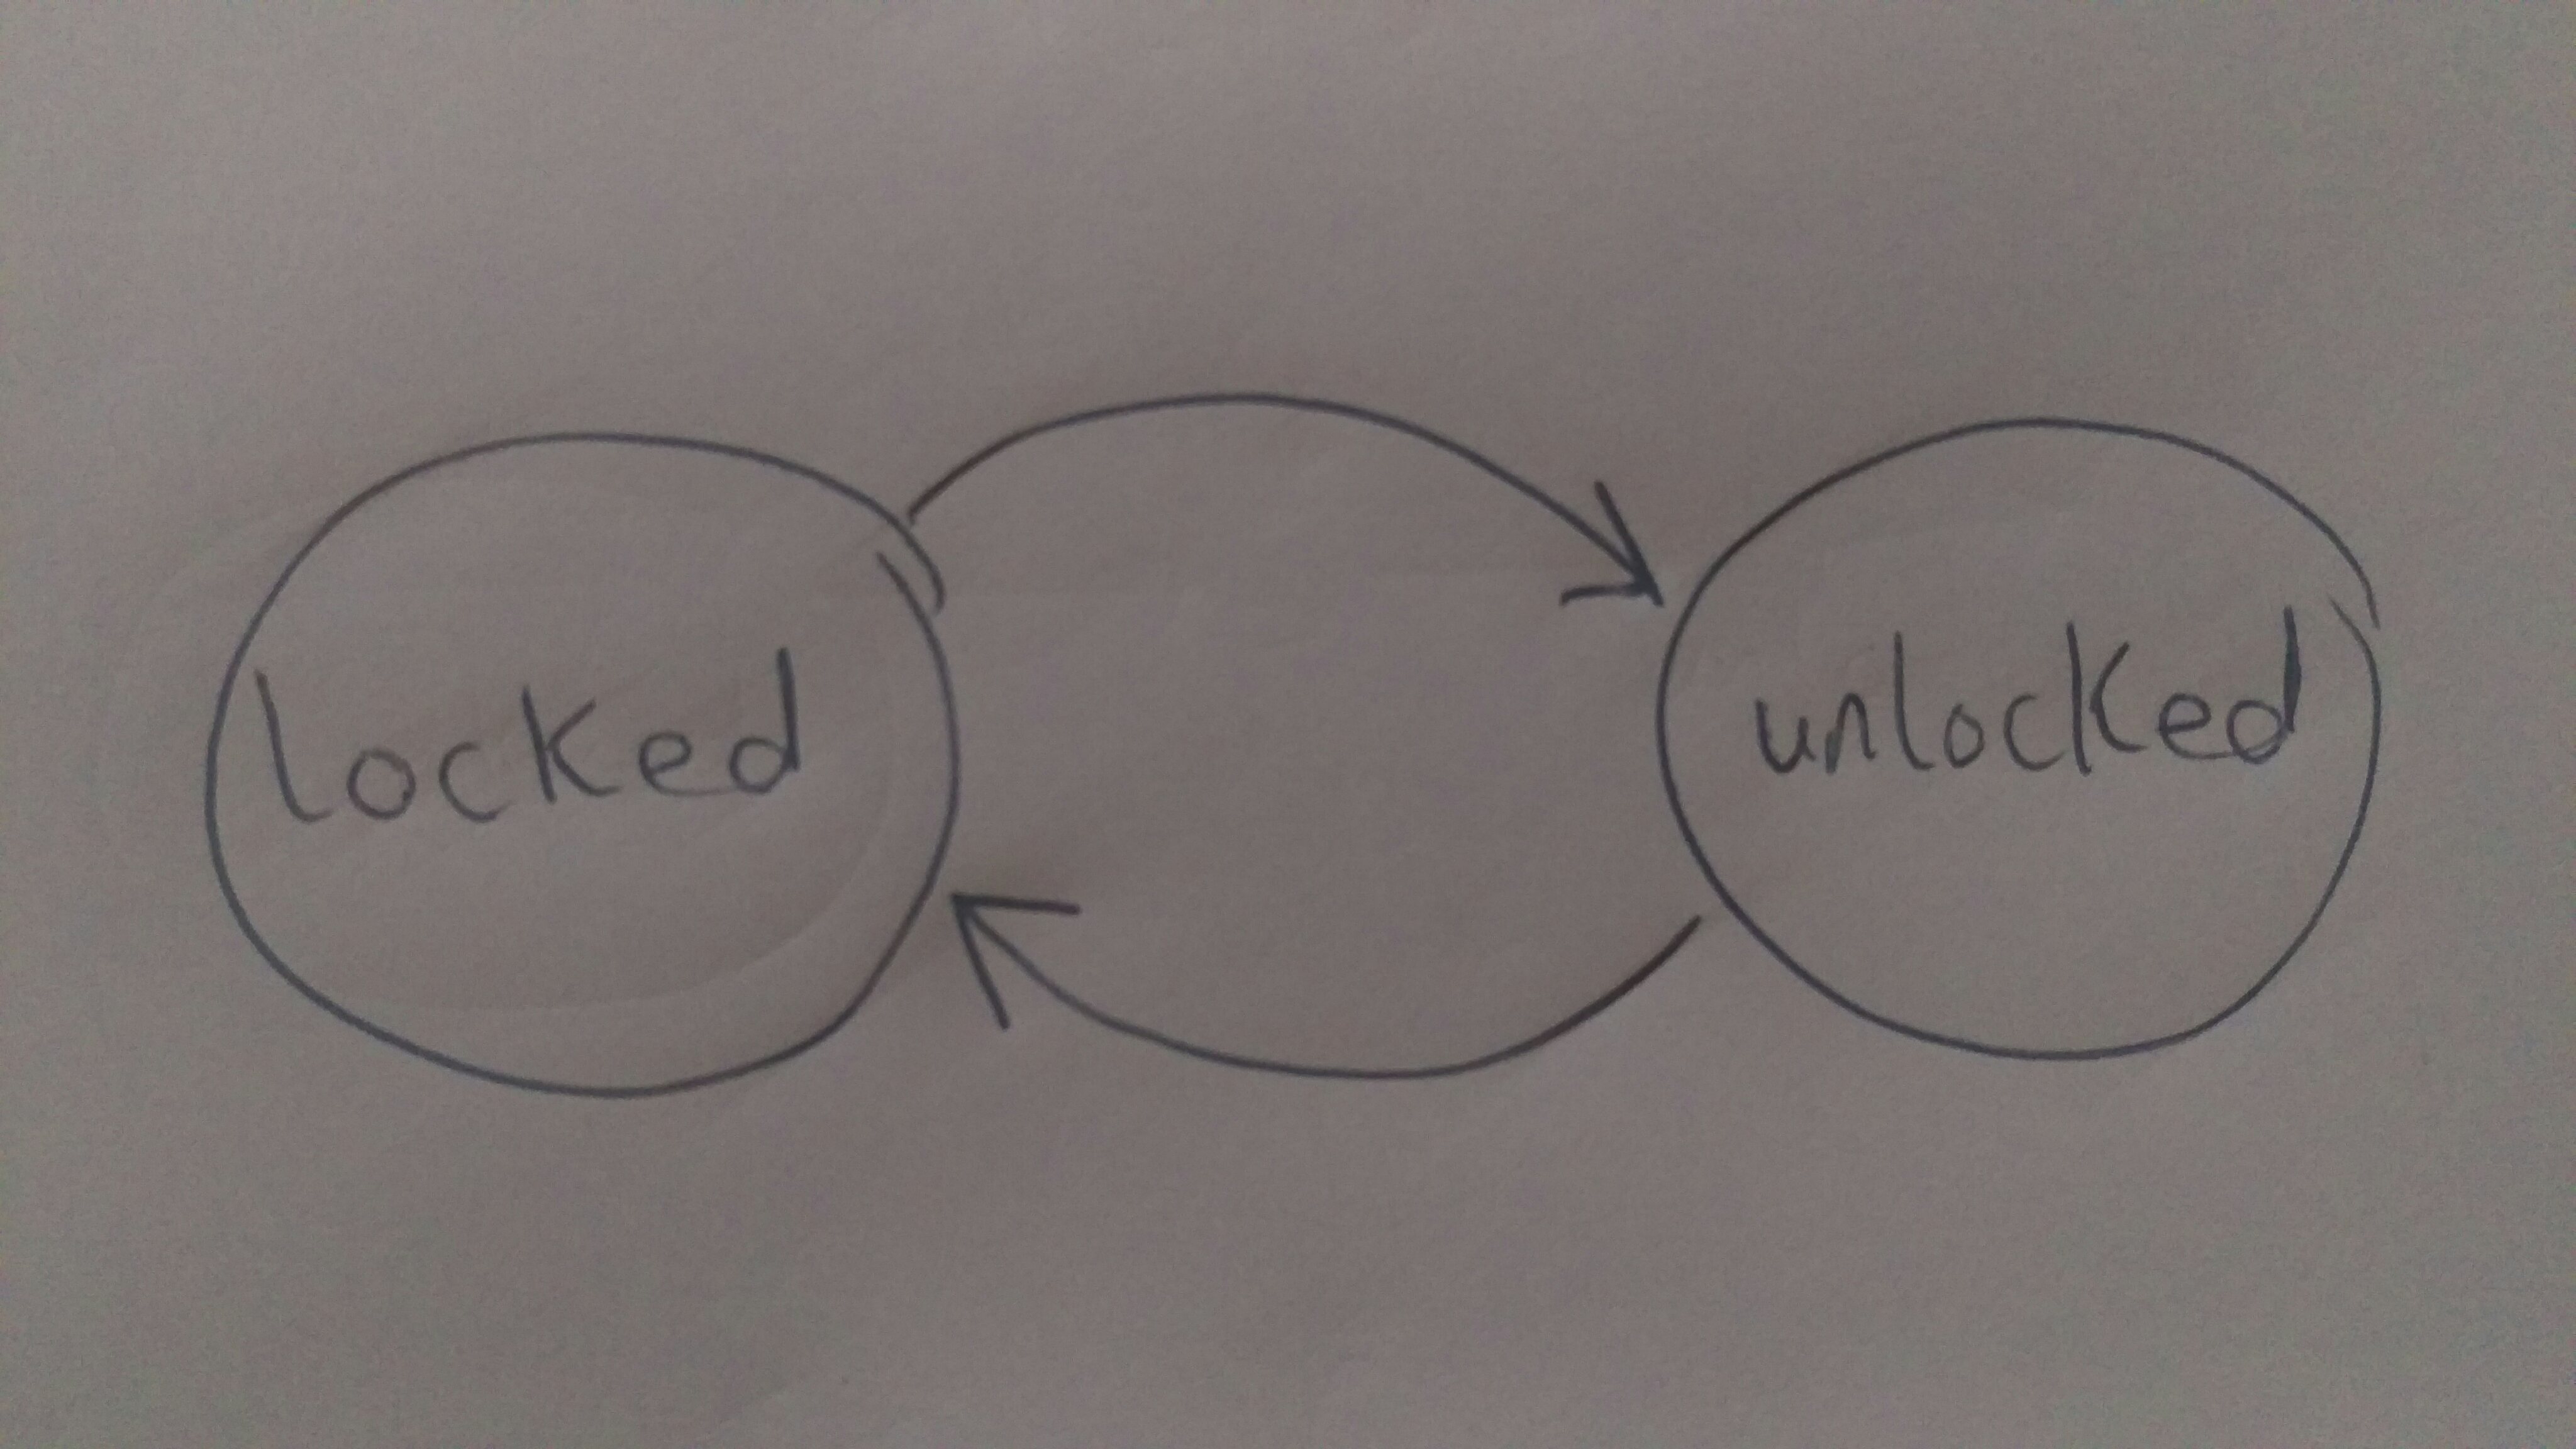 locked
unlocked